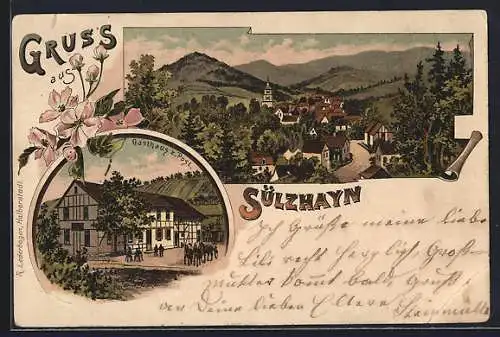 GRUSS
aus
Gasthaus z. Post.
SÜLZHAYN
R. Lederbogen, Halberstadt.
Ich Grüße meine liebe
recht herzlich, Groß-
mutter kommt bald, Gruß
an Deine lieben Eltern